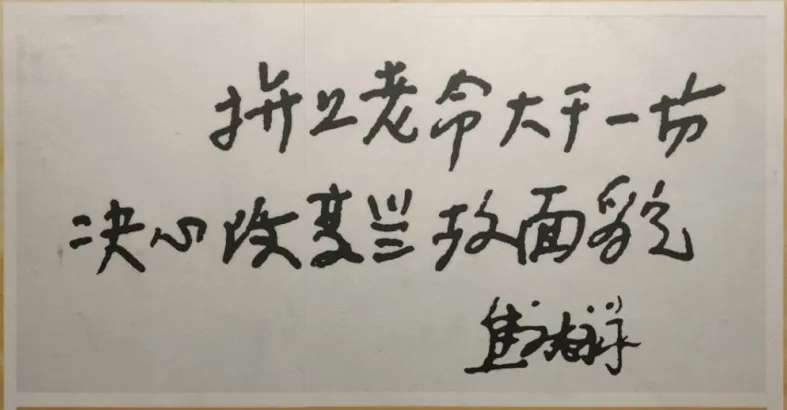 拼上老命大干一场
决心改变兰考面貌
焦裕禄